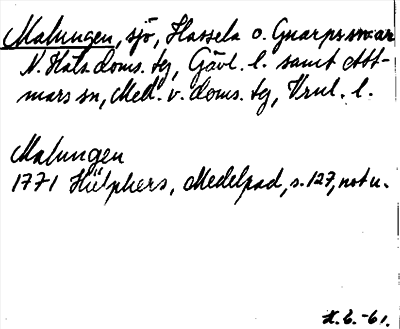 Malungen, sjö, Hassela o. Gnarps snar
N. Häls. doms. tg, Gävl. l. samt Att-
mars sn, Med. v. doms. tg, Vrnl. l.
Malungen
1771 Hülphers, Medelpad, s. 127, not u.
H. E. -61.